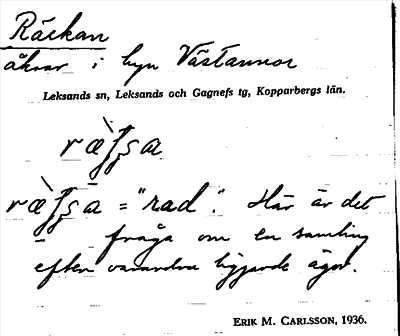 Räckan
åkrar i byn Västannor
Leksands sn, Leksands och Gagnefs tg, Kopparbergs län.
= "rad". Här är det
fråga om en samling
efter varandra liggande ägor.
ERIK M. CARLSSON, 1936.